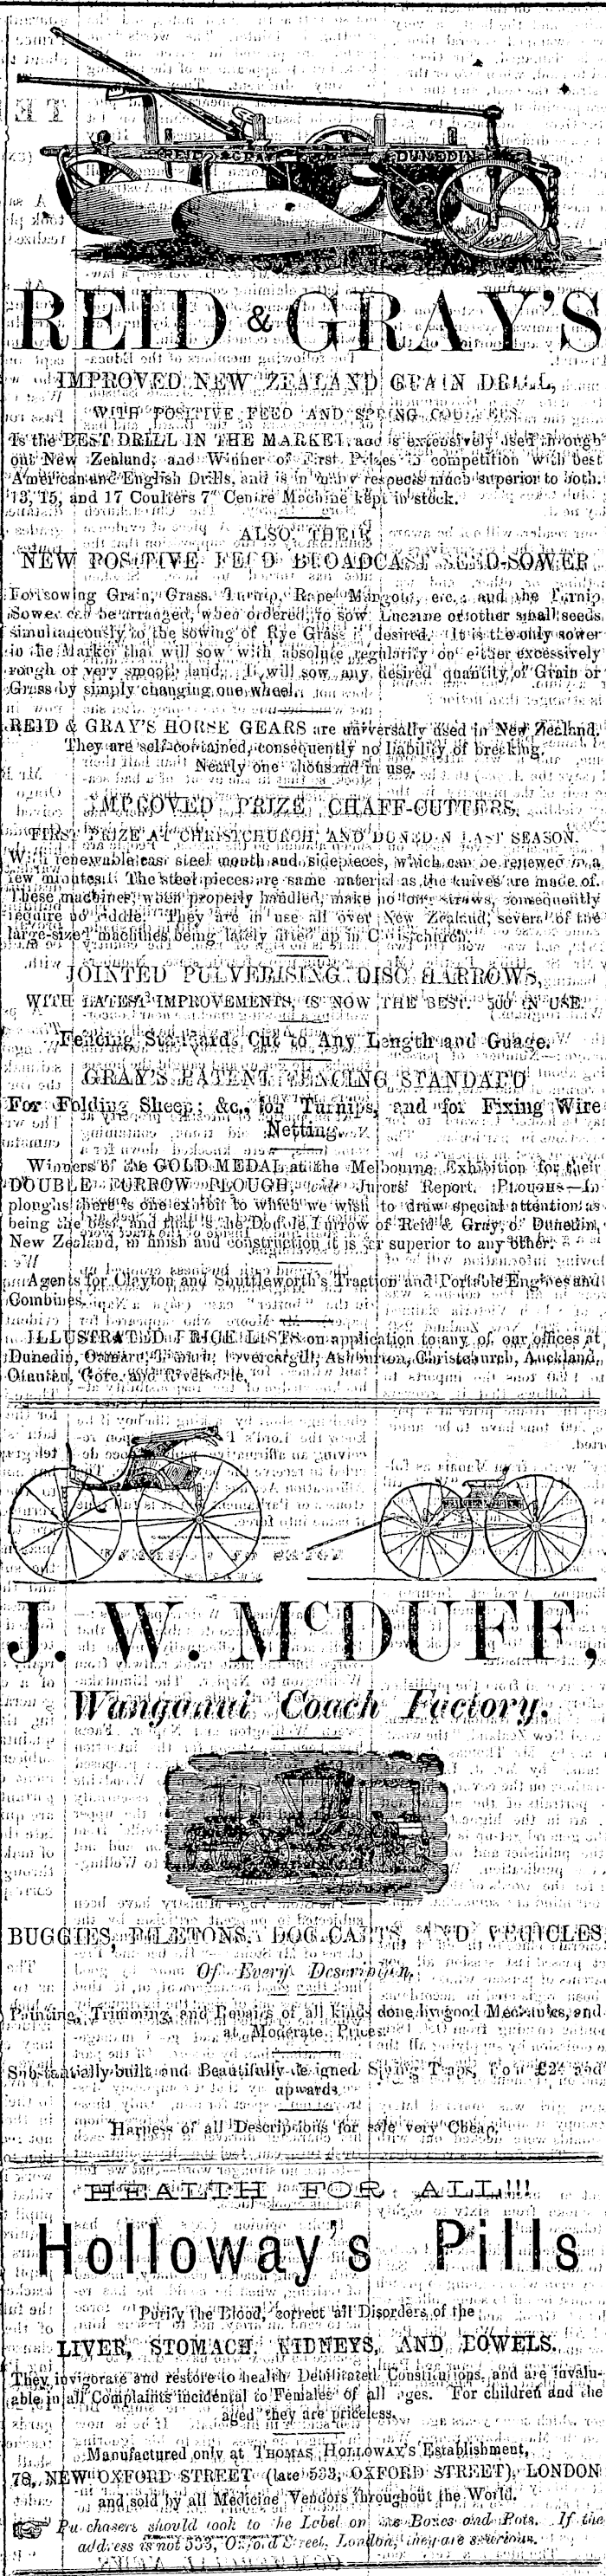 REID & GRAY DUNEDIN
REID & GRAY'S
IMPROVED NEW ZEALAND GRAIN DRILL,
WITH POSITIVE FEED AND SPRING COULTERS
Is the BEST DRILL IN THE MARKET, and is extensively used through
out New Zealand, and Winner of First Prizes in competition with best
American and English Drills, and is in many respects much superior to both.
13, 15, and 17 Coulters 7" Centre Machine kept in stock.
ALSO, THEIR
NEW POSITIVE FEED BROADCAST SEED-SOWER
For sowing Grain, Grass, Turnip, Rape, Mangold, etc.; and the Turnip
Sower can be arranged, when ordered, to sow Lucerne or other small seeds
simultaneously to the sowing of Rye Grass if desired. It is the only sower
in the Market that will sow with absolute regularity on either excessively
rough or very smooth land. It will sow any desired quantity of Grain or
Grass by simply changing one wheel.
REID & GRAY'S HORSE GEARS are universally used in New Zealand.
They are self-contained, consequently no liability of breaking.
Nearly one thousand in use.
IMPROVED PRIZE CHAFF-CUTTERS,
FIRST PRIZE AT CHRISTCHURCH AND DUNEDIN LAST SEASON.
With renewable cast steel mouth and sidepieces, which can be renewed in a
few minutes. The steel pieces are same material as the knives are made of.
These machines, when properly handled, make no long straws, consequently
require no riddle. They are in use all over New Zealand, several of the
large-sized machines being lately fitted up in Christchurch.
JOINTED PULVERISING DISC HARROWS,
WITH LATEST IMPROVEMENTS, IS NOW THE BEST. 500 IN USE.
Fencing Standards Cut to Any Length and Guage.
GRAY'S PATENT FENCING STANDARD
For Folding Sheep; &c., on Turnips, and for Fixing Wire
Netting.
Winners of the GOLD MEDAL at the Melbourne Exhibition for their
DOUBLE FURROW PLOUGH, vide Jurors' Report. PLOUGHS—In
ploughs there is one exhibit to which we wish to draw special attention as
being the best, and that is the Double Furrow of Reid & Gray, of Dunedin,
New Zealand, in finish and construction it is far superior to any other.
Agents for Clayton and Shuttleworth's Traction and Portable Engines and
Combines.
ILLUSTRATED PRICE LISTS on application to any of our offices at
Dunedin, Oamaru, Timaru, Invercargill, Ashburton, Christchurch, Auckland,
Gore, and Riversdale.
J. W. McDUFF,
Wanganui Coach Factory.
BUGGIES, PHAETONS, DOG-CARTS, AND VEHICLES
Of Every Description.
Painting, Trimming, and Repairs of all kinds done by good Mechanics, and
at Moderate Prices.
Substantially built and Beautifully designed Spring Traps, from and
upwards
Harness of all Descriptions for sale very Cheap.
HEALTH FOR ALL!!!
Holloway's Pills
Purify the Blood, correct all Disorders of the
LIVER, STOMACH, KIDNEYS, AND BOWELS.
They invigorate and restore to health Debilitated Constitutions, and are invalu-
able in all Complaints incidental to Females of all ages. For children and the
aged they are priceless.
Manufactured only at THOMAS HOLLOWAY'S Establishment,
78, NEW OXFORD STREET (late 533, OXFORD STREET), LONDON
and sold by all Medicine Vendors throughout the World.
Purchasers should look to the Label on the Boxes and Pots. If the
address is not 533, Oxford Street, London, they are spurious.